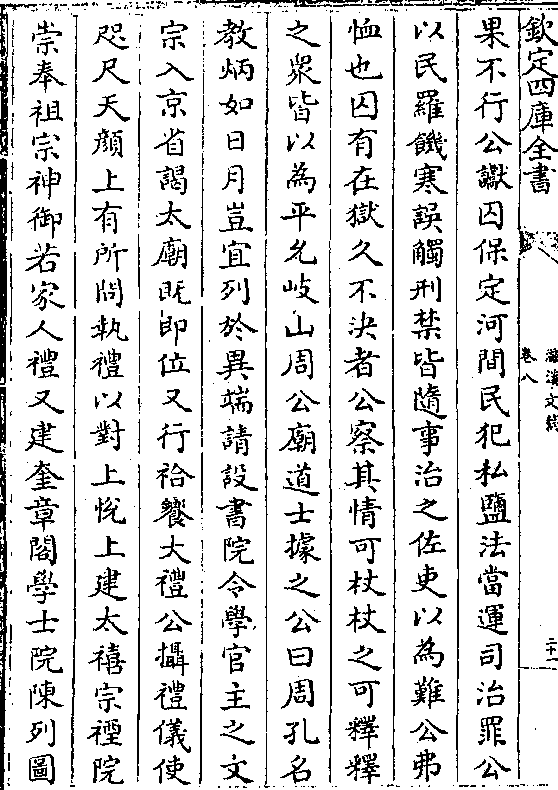 欽定四庫全書
滋溪文稿
卷八
二十一
果不行公讞囚保定河間民犯私鹽法當運司治罪公
以民羅饑寒誤觸刑禁皆隨事治之佐吏以為難公弗
恤也囚有在獄久不決者公察其情可杖杖之可釋釋
之衆皆以為平允岐山周公廟道士據之公曰周孔名
教炳如日月豈宜列於異端請設書院令學官主之文
宗入京省謁太廟既即位又行祫饗大禮公攝禮儀使
咫尺天顔上有所問執禮以對上悅上建太禧宗禋院
崇奉祖宗神御若家人禮又建奎章閣學士院陳列圖